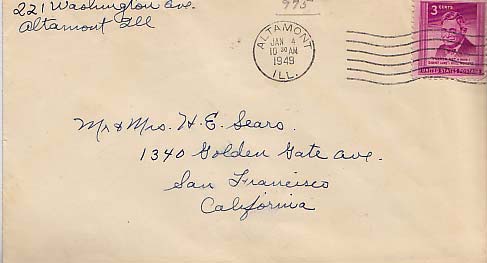 221 Washington Ave.
Altamont Ill
975
ALTAMONT
JAN 4
10 30 AM
1949
ILL.
3 CENTS
UNITED STATES POSTAGE
Mr & Mrs. H. E. Sears.
1340 Golden Gate Ave.
San Francisco
California